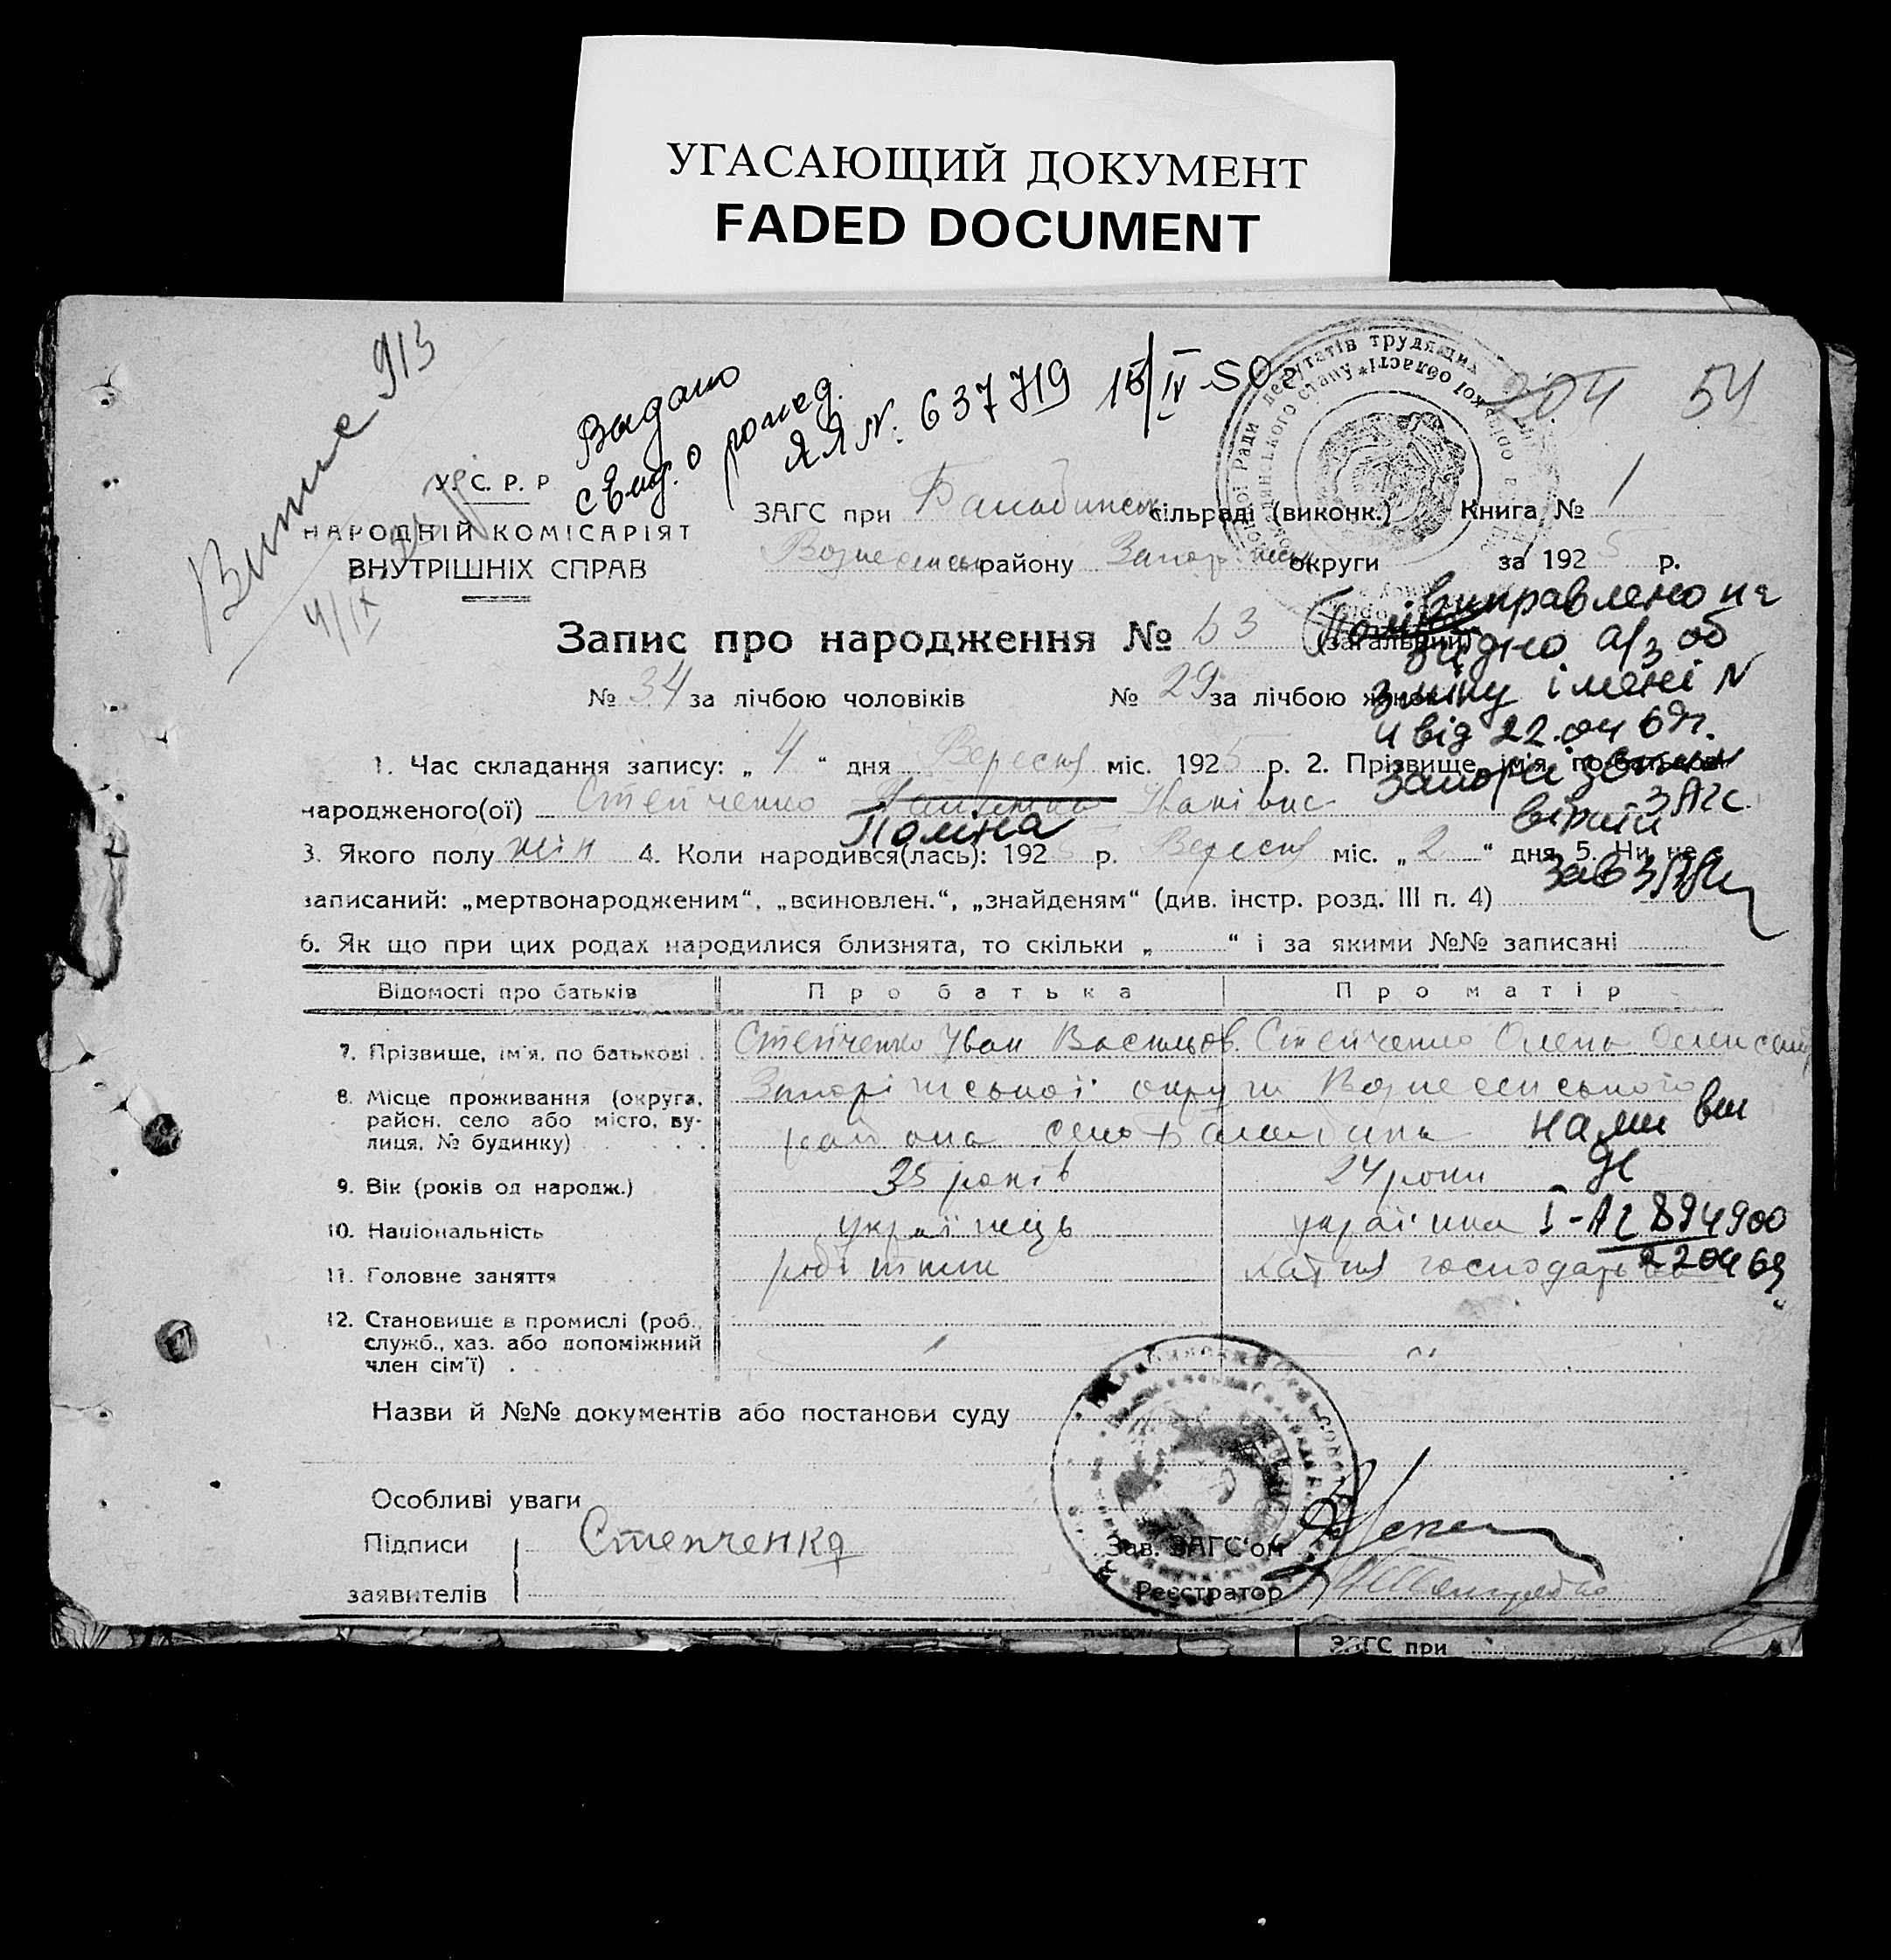 УГАСАЮЩИЙ ДОКУМЕНТ
FADED DOCUMENT
913
Выдано
свид. о рожед.
ЯЛ №. 637719 15/IV 50
204 54
У. С. Р. Р
НАРОДНІЙ КОМІСАРІЯТ
ВНУТРІШНІХ СПРАВ
4/IX
ЗАГС при Балабинськ сільраді (виконк.) Книга № 1
Вознесенськ району Запоріжськ округи за 1925 р.
Запис про народження № 63 (загальний)
№ 34 за лічбою чоловіків № 29 за лічбою жінок
виправлено на
згідно а/з об
зміну імені N
4 від 22.04 69г.
ЗАГС
вірний
Зав ЗАГС
1. Час складання запису: „ 4 “ дня Вересня міс. 1925 р. 2. Прізвище, ім'я, по батькові
народженого(ої) Степченко Іванівна
Поліна
3. Якого полу жін 4. Коли народився(лась): 1925 р. Вересня міс. „ 2 “ дня 5. Чи не є
записаний: „мертвонародженим“, „всиновлен.“, „знайденям“ (див. інстр. розд. III п. 4)
6. Як що при цих родах народилися близнята, то скільки „ “ і за якими №№ записані
Відомості про батьків Про батька Про матір
7. Прізвище, ім'я, по батькові Степченко Іван Васильов. Степченко Олена Олександ
8. Місце проживання (округа, район, село або місто, вулиця, № будинку) Запоріжської округи Вознесенського
района село Балабина
9. Вік (років од народж.) 35 років 24 роки
10. Національність українець українка I-АГ 894900
11. Головне заняття робітник хатня господарка 220469
12. Становище в промислі (роб.,
служб., хаз. або допоміжний
член сім'ї)
Назви й №№ документів або постанови суду
Особливі уваги
Підписи Степченко
заявителів
Зав. ЗАГС'ом
Реєстратор
ЗАГС при